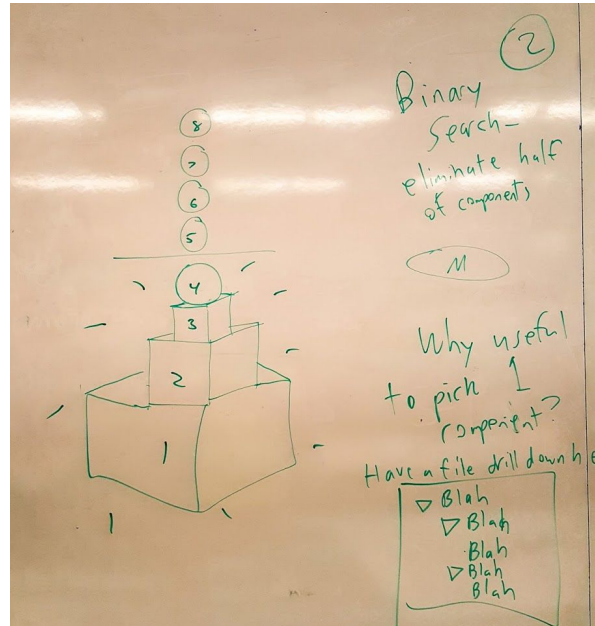 2
Binary
Search-
eliminate half
of components
8
7
6
5
4
3
2
1
M
Why useful
to pick 1
component?
Have a file drill down h
▷ Blah
▷ Blah
Blah
▷ Blah
Blah